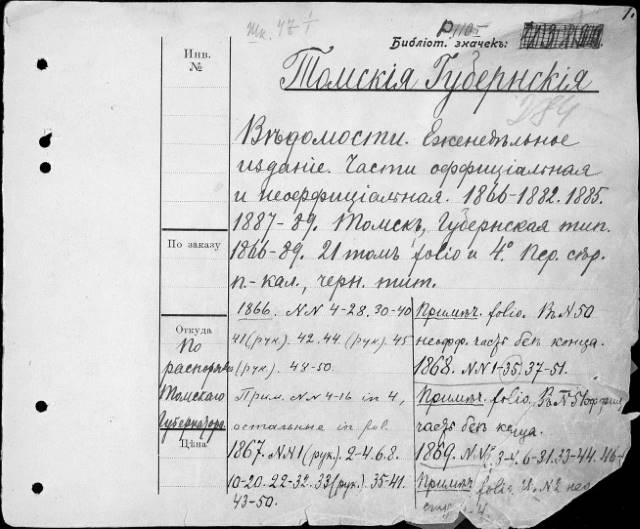 1.
Шк. 47 1/1
Р 1105
Библіот. значекъ:
Инв.
№
Томскія Губернскія
284
Вѣдомости. Еженедѣльное
изданіе. Части оффиціальная
и неоффиціальная. 1866-1882. 1885.
1887-89. Томскъ, Губернская тип.
1866-89. 21 томъ folio и 4º. Пер. стар.
п-кал., черн. тит.
По заказу
Откуда
По
распоряж.
Томскаго
Губернатора
Цѣна
1866. NN 4-28. 30-40
41 (рук). 42. 44. (рук). 45
(рук). 48-50.
Прим. NN 4-16 in 4,
остальные in fol.
1867. NN 1 (рук). 2-4. 6. 8.
10-20. 22-32. 33 (рук). 35-41.
43-50.
Примѣч. folio. Въ N 50
неофф. часть безъ конца.
1868. NN 1-35. 37-51.
Примѣч. folio. Въ N 51 оффиц.
часть безъ конца.
1869. NN 3-4. 6-31. 33-44. 46-
Примѣч. folio. N 2 нео